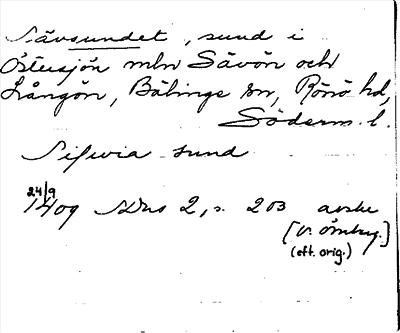 Sävsundet, sund i
Östersjön mln Sävön och
Långön, Bälinge sn, Rönö hd,
Söderm. l.
Sifwia sund
24/9
1409 SDns 2, s. 203 avskr
[v. Örnbg.]
(eft. orig.)